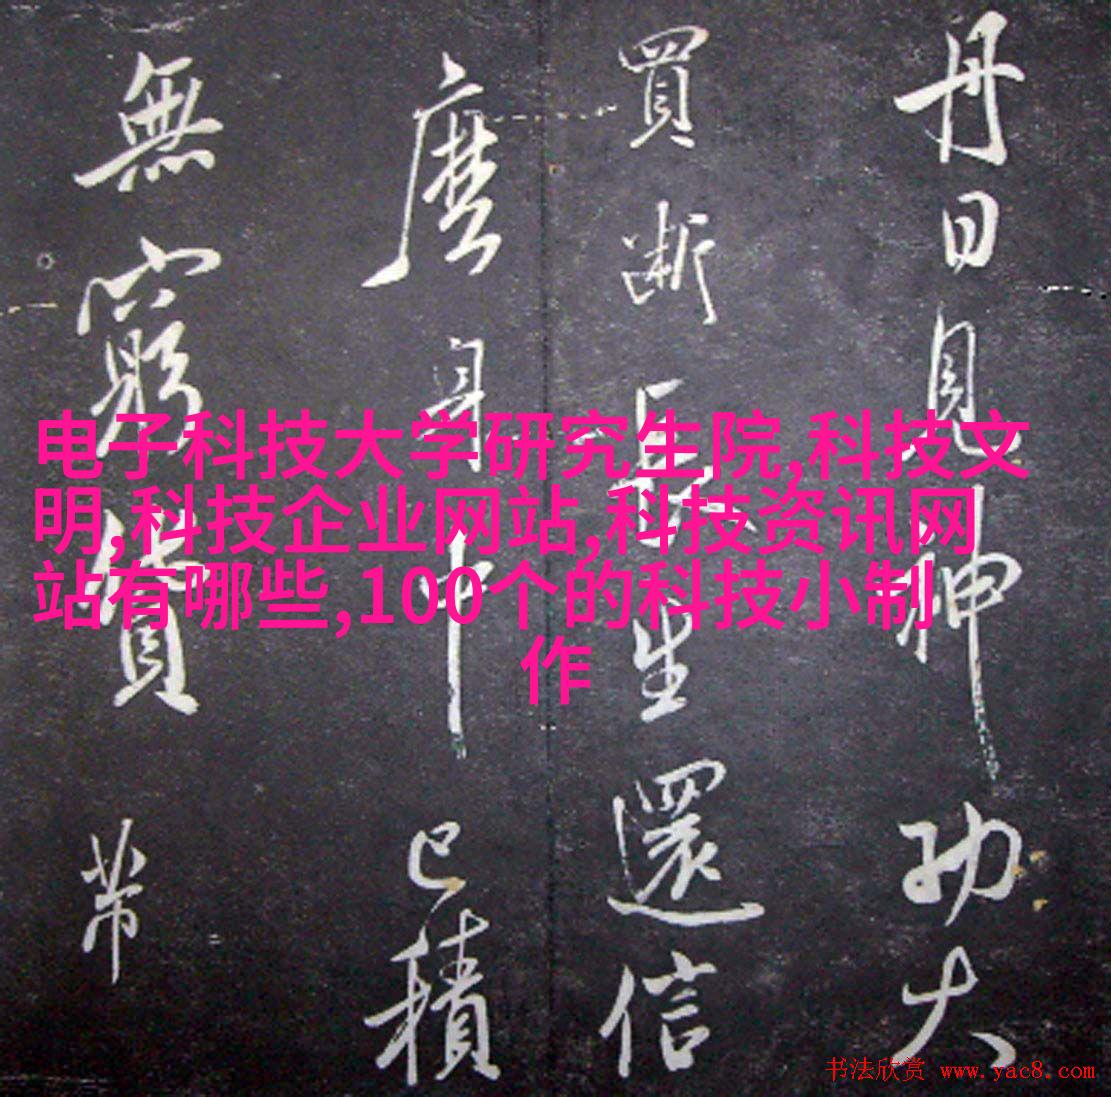 丹日見神功大
買斷長生還信
麼身中已積
無窮貨帶
电子科技大学研究生院,科技文
明,科技企业网站,科技资讯网
站有哪些,100个的科技小制
作
书法欣赏 www.yac8.com